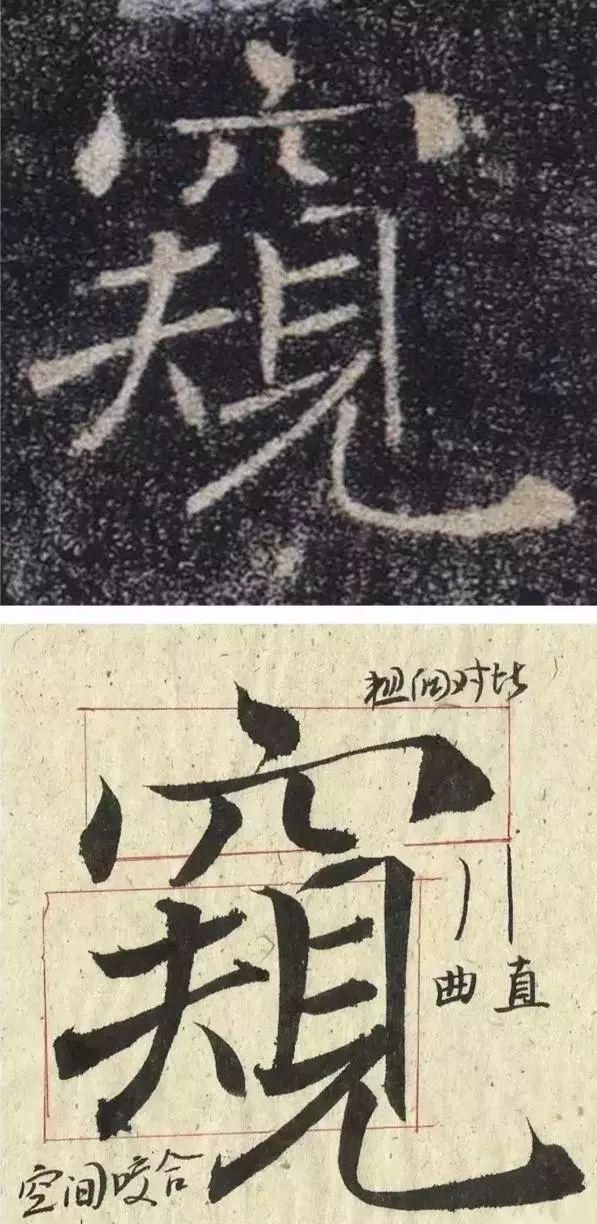 窺
粗细对比
窺
曲直
空间咬合